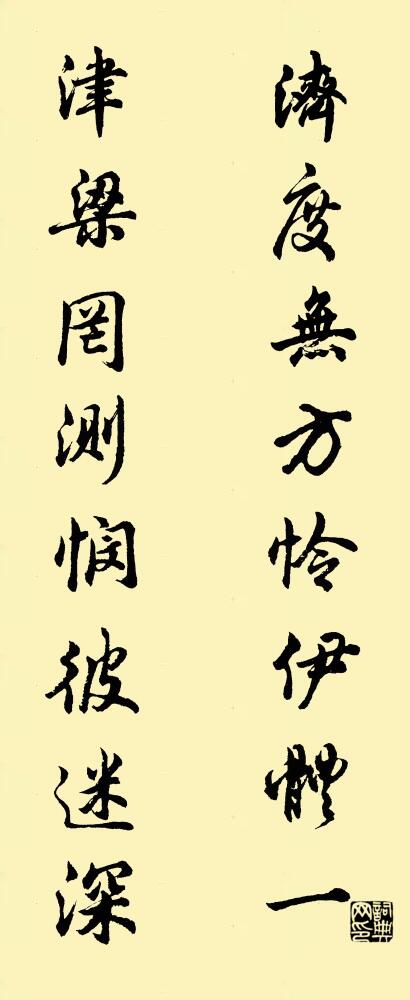 濟度無方怜伊體一
津梁罔測悯彼迷深
詞典網印